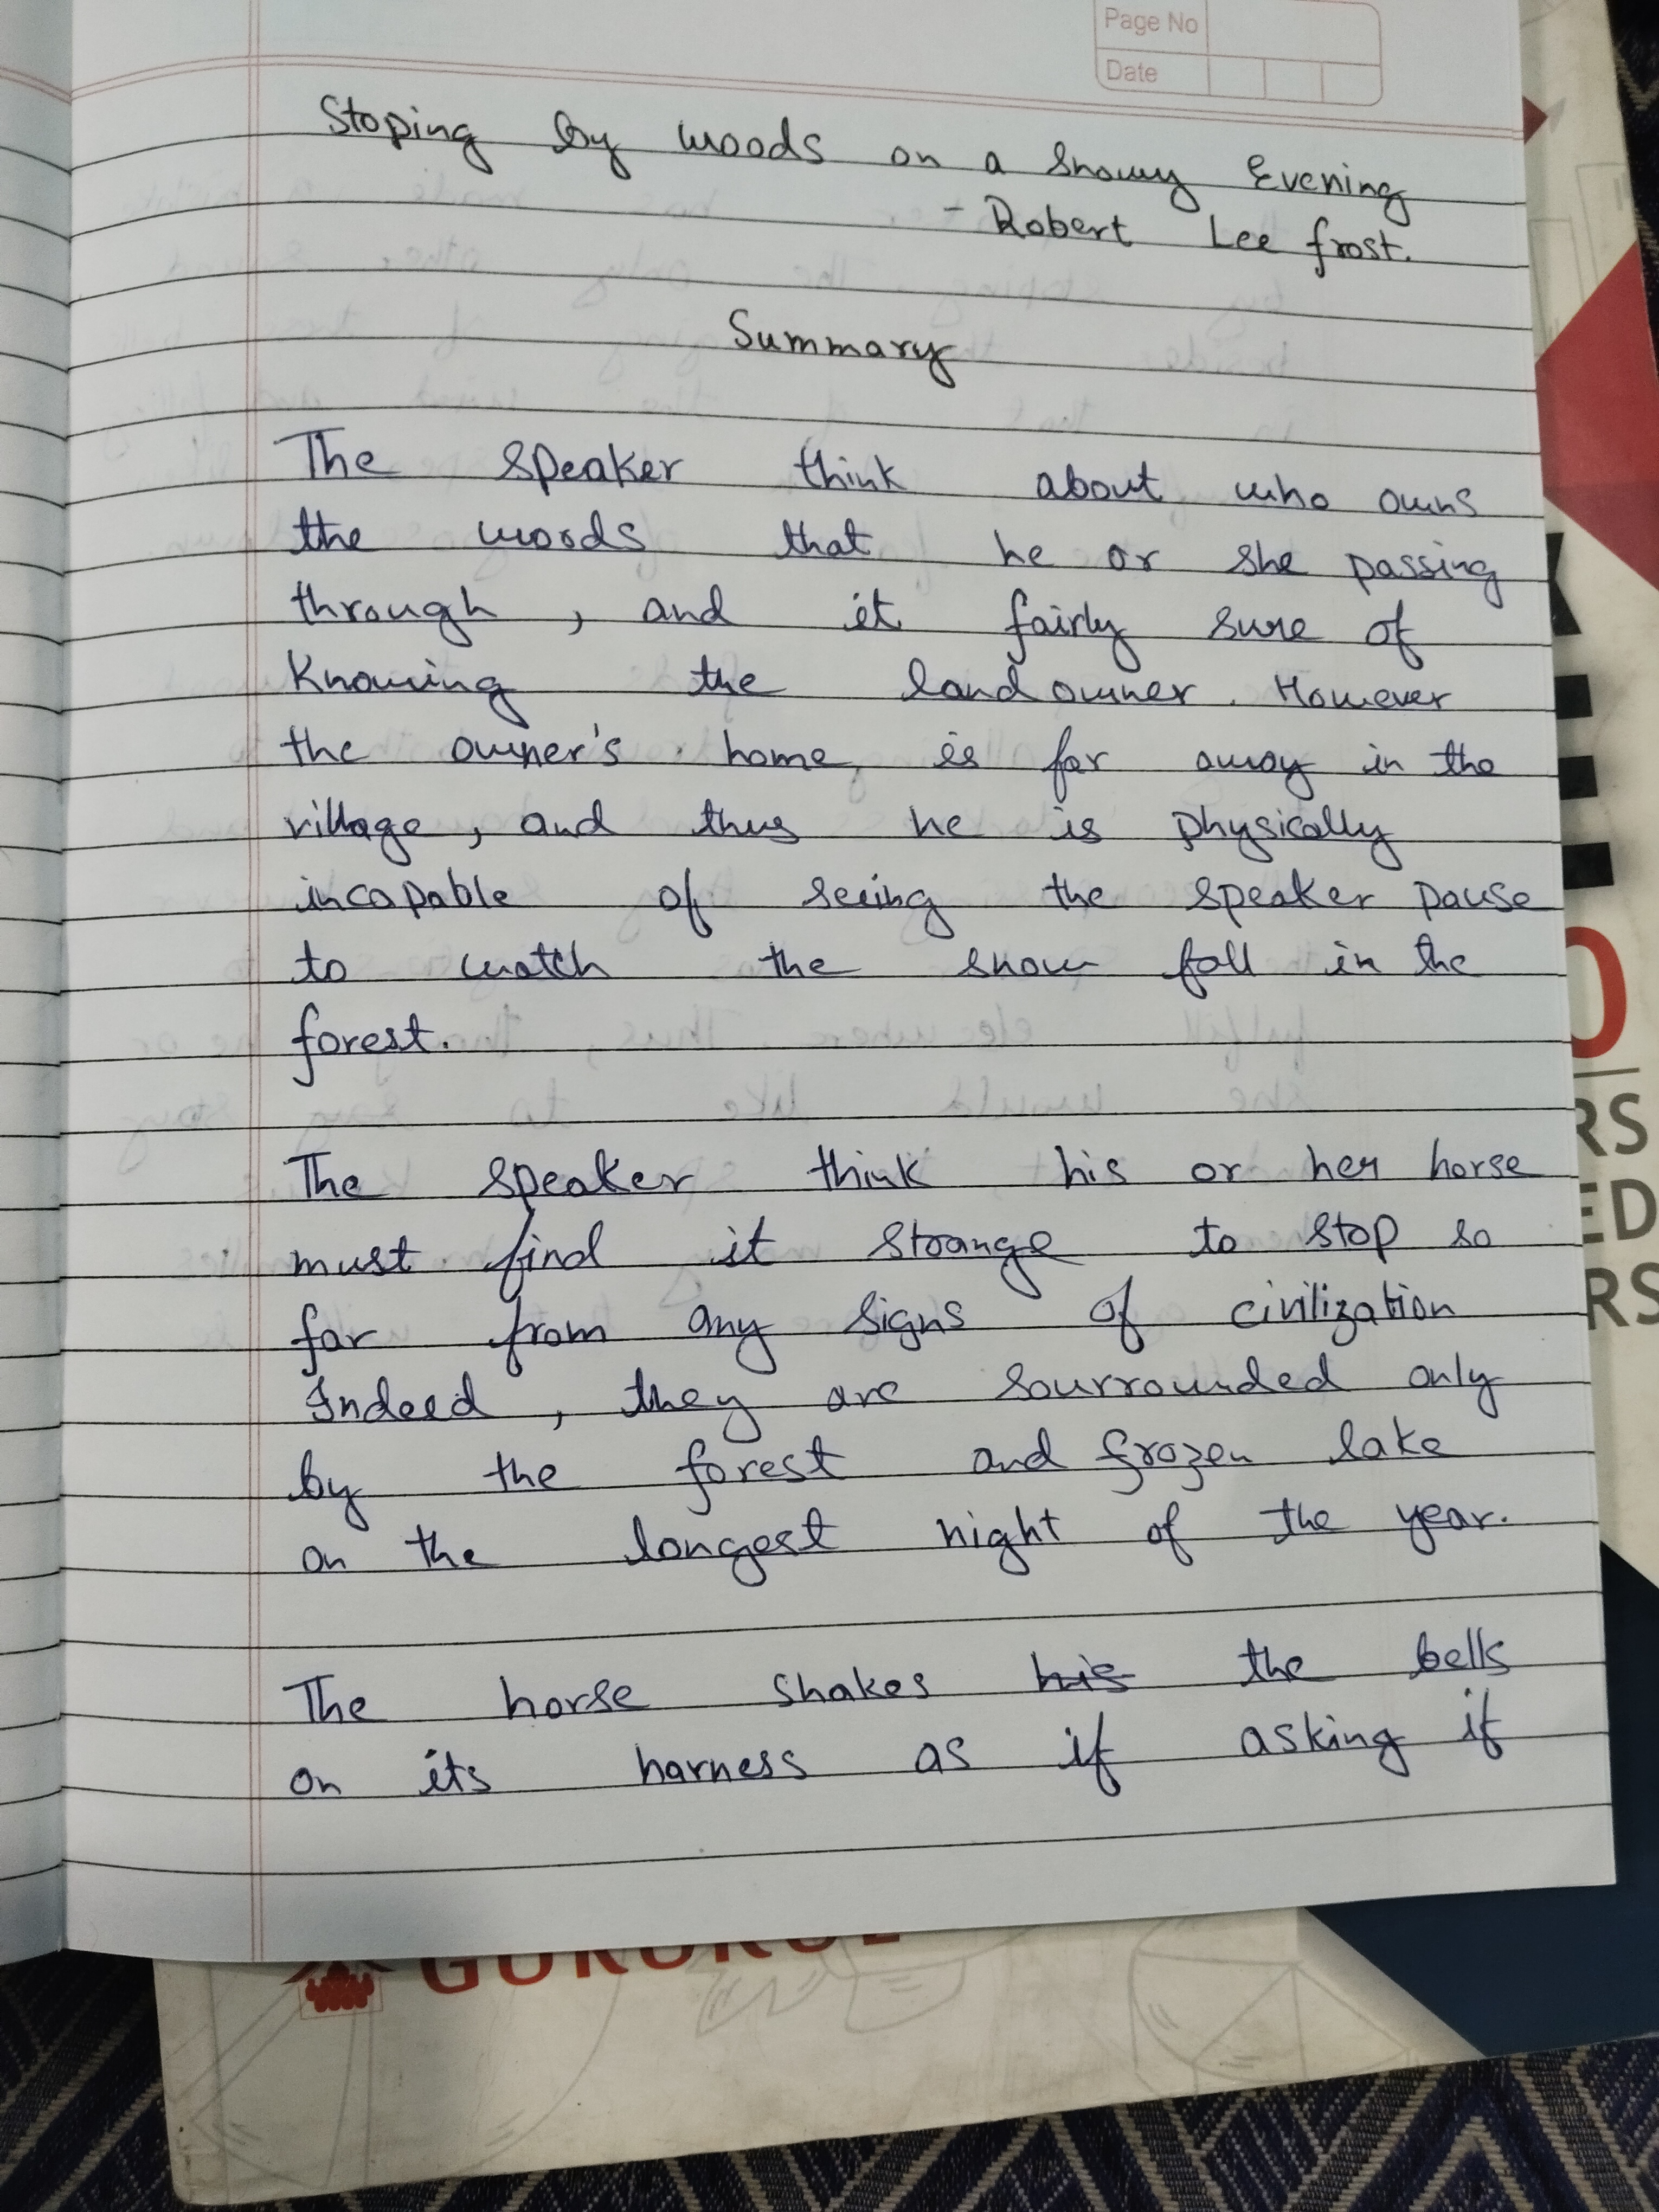 Page No
Date
Stoping by woods on a Snowy Evening
- Robert Lee frost.
Summary
The speaker think about who owns
the woods that he or she passing
through, and it fairly sure of
Knowing the landowner. However
the owner's home is far away in the
village, and thus he is physically
incapable of seeing the speaker pause
to watch the snow fall in the
forest.
The speaker think his or her horse
must find it strange to stop so
far from any signs of civilization
Indeed, they are sourrounded only
by the forest and frozen lake
on the longest night of the year.
The horse shakes his the bells
on its harness as if asking if
RS
ED
RS